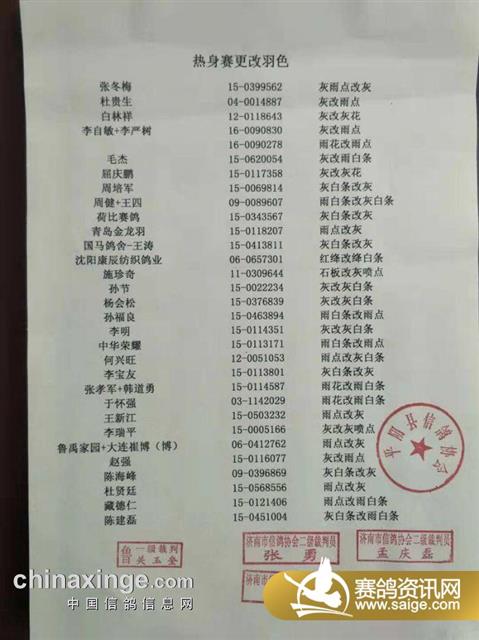 热身赛更改羽色
张冬梅 15-0399562 灰雨点改灰
杜贵生 04-0014887 灰改雨点
白林祥 12-0118643 灰改灰花
李自敏+李严树 16-0090830 灰改雨点
16-0090278 雨花改雨点
毛杰 15-0620054 灰改雨白条
屈庆鹏 15-0117358 灰改灰花
周培军 15-0069814 灰白条改灰
周健+王四 09-0089607 雨白条改灰白条
荷比赛鸽 15-0343567 灰白条改灰
青岛金龙羽 15-0118207 雨点改灰
国马鸽舍-王涛 15-0413811 灰白条改灰
沈阳康辰纺织鸽业 06-0657301 红绛改绛白条
施珍奇 11-0309644 石板改灰喷点
孙节 15-0022234 灰改灰白条
杨会松 15-0376839 灰改灰白条
孙福良 15-0463894 雨白条改雨点
李明 15-0114351 灰改灰白条
中华荣耀 15-0113171 雨白条改雨点
何兴旺 12-0051053 雨点改灰白条
李宝友 15-0113801 灰白条改灰
张孝军+韩道勇 15-0114587 雨花改雨白条
于怀强 03-1142029 雨花改雨白条
王新江 15-0503232 雨点改灰
李瑞平 15-0005166 灰改灰喷点
鲁禹家园+大连崔博（博） 06-0412762 雨点改灰
赵强 15-0116077 灰改雨点
陈海峰 09-0396869 灰白条改灰
杜贤廷 15-0568556 雨点改灰
藏德仁 15-0121406 雨点改雨白条
陈建磊 15-0451004 灰白条改雨白条
信鸽协会
一级裁判
济南市信鸽协会二级裁判员
张 勇
济南市信鸽协会二级裁判员
孟庆磊
chinaxinge.com
中国信鸽信息网
赛鸽资讯网
www.saige.com